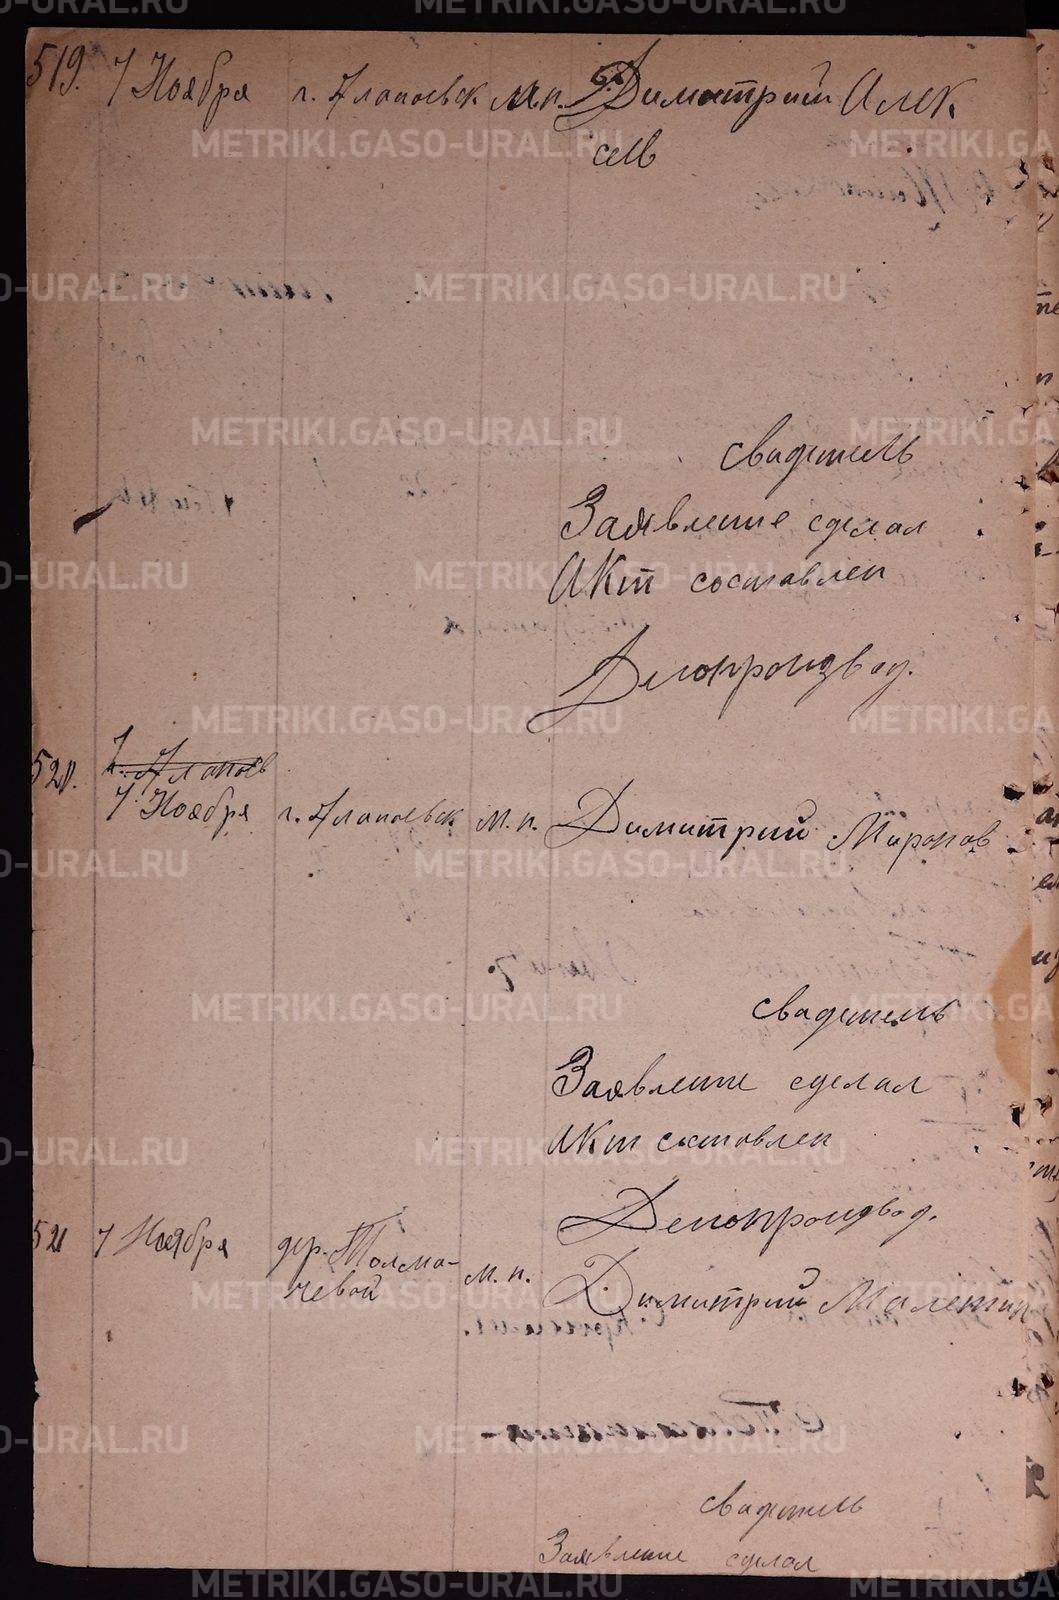 519. 7 Ноября г. Алапаевск м.п. Димитрий Алек
сеев
Свидетель
Заявление сделал
Акт составлен
Делопроизвод.
520. 7. Алапаев
7 Ноября г. Алапаевск м.п. Димитрий Миронов
Свидетель
Заявление сделал
Акт составлен
Делопроизвод.
521 7 Ноября дер. Толма-
чевой м.п. Димитрий
Свидетель
Заявление сделал
METRIKI.GASO-URAL.RU